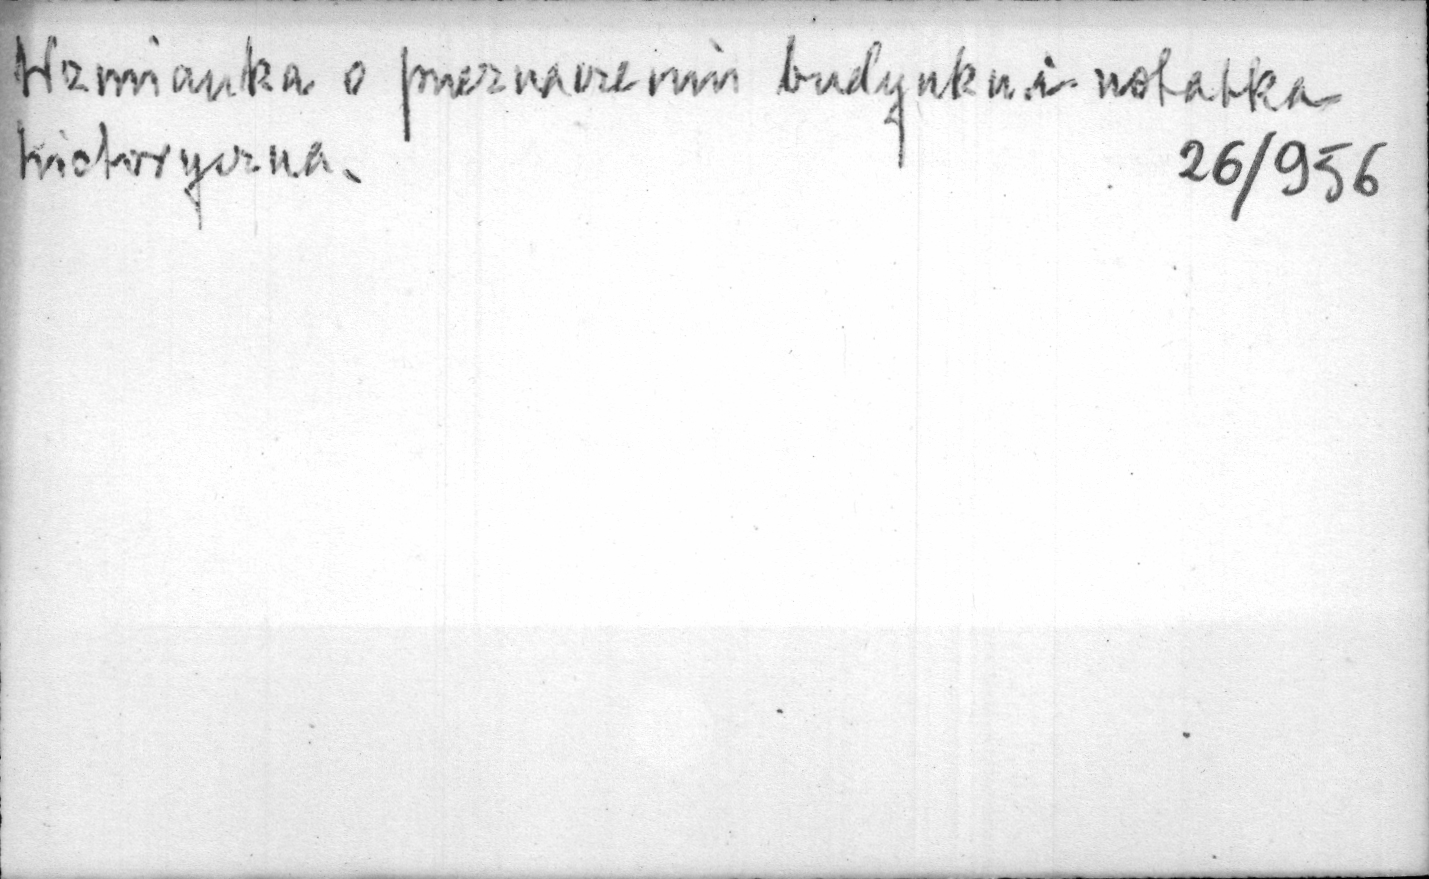 Wzmianka o przeznaczeniu budynku i notatka
historyczna.
26/956